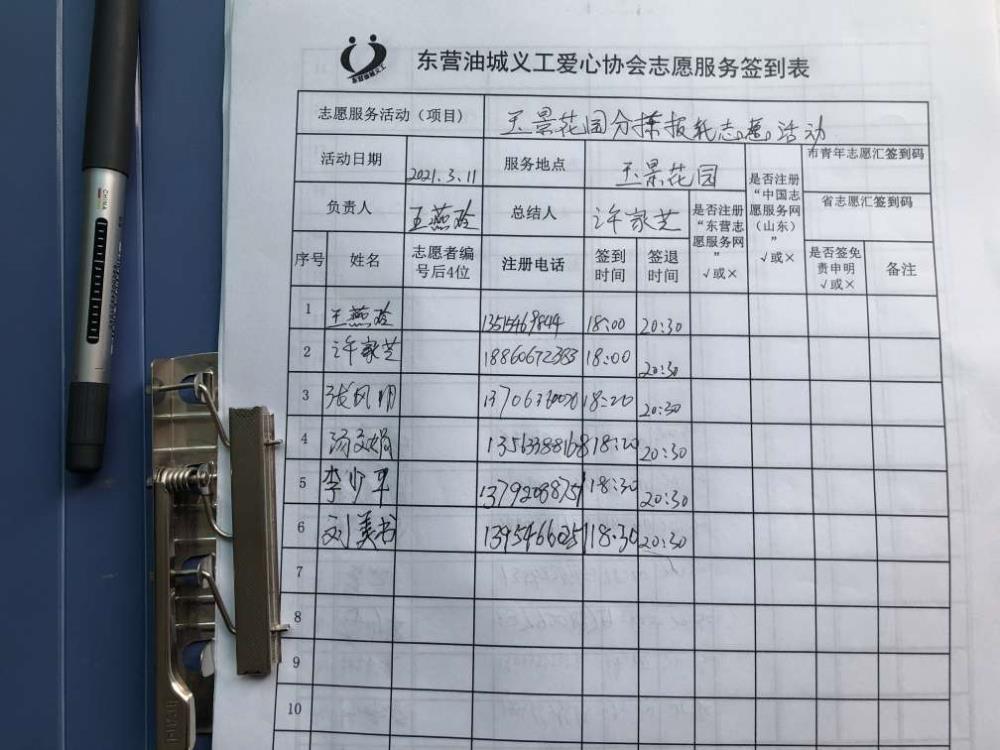 东营油城义工
东营油城义工爱心协会志愿服务签到表
志愿服务活动（项目） 玉景花园分拣报纸志愿活动
活动日期 2021.3.11 服务地点 玉景花园 是否注册“中国志愿服务网（山东）”√或× 市青年志愿汇签到码
负责人 王燕玲 总结人 许家芝 是否注册“东营志愿服务网”√或× 省志愿汇签到码
序号 姓名 志愿者编号后4位 注册电话 签到时间 签退时间 是否签免责申明√或× 备注
1 王燕玲 18:00 20:30
2 许家芝 18860672383 18:00 20:30
3 张凤明 18:20 20:30
4 汤文娟 13563388168 18:20 20:30
5 李少平 13792088751 18:30 20:30
6 刘美书 13954660251 18:30 20:30
7
8
9
10